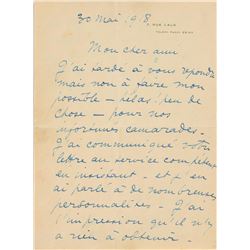 30 Mai 1918
Mon cher ami
J'ai tardé à vous répondre
mais non à faire mon
possible – hélas! peu de
chose – pour nos
infortunés camarades.
J'ai communiqué votre
lettre au service compétent
en insistant – et j'en
ai parlé à de nombreuses
personnalités – J'ai
l'impression qu'il n'y
a rien à obtenir –